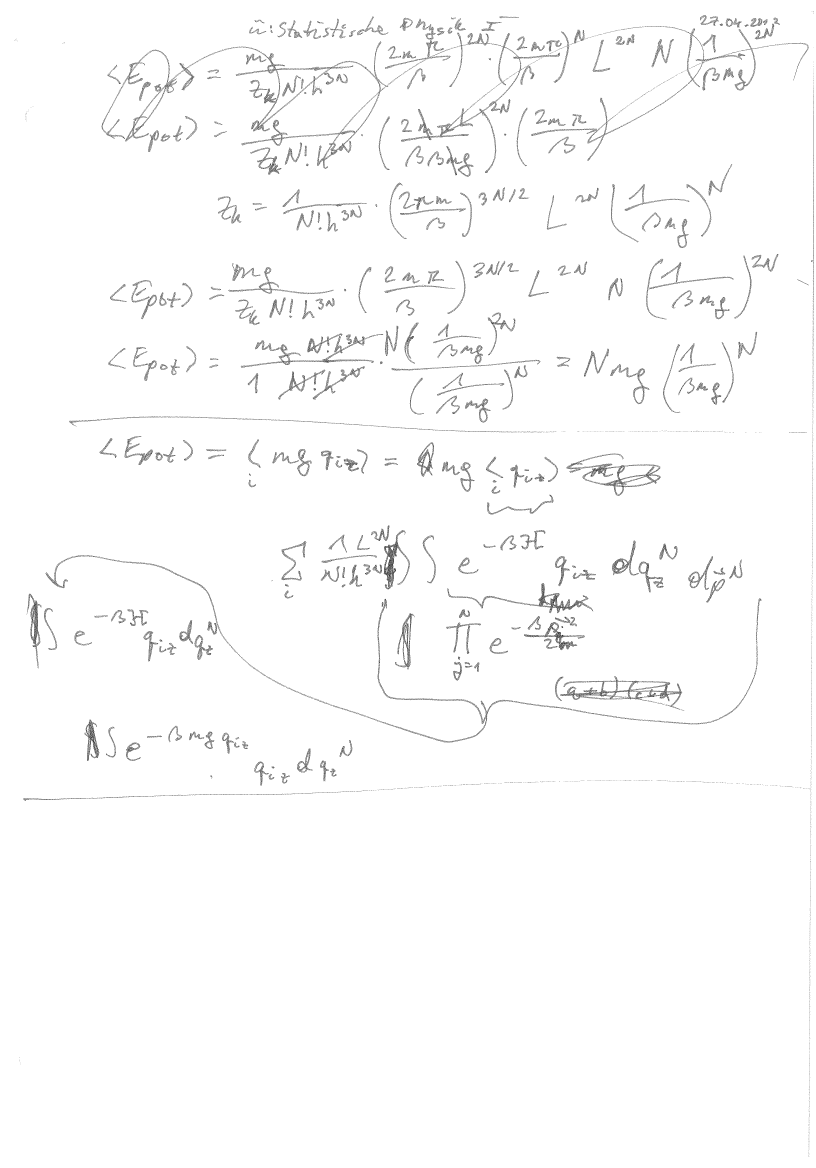 Ü: Statistische Physik I 27.04.2012
<E_pot> = mg / (Z_k N! h^{3N}) (2mπ/β)^{2N} · (2mπ/β)^N L^{2N} N (1/(βmg))^{2N}
<E_pot> = mg / (Z_k N! h^{3N}) · (2mπL/(ββmg))^{2N} · (2mπ/β)
Z_k = 1/(N! h^{3N}) · (2πm/β)^{3N/2} L^{2N} (1/(βmg))^N
<E_pot> = mg / (Z_k N! h^{3N}) · (2mπ/β)^{3N/2} L^{2N} N (1/(βmg))^{2N}
<E_pot> = (mg N! h^{3N}) / (1 N! h^{3N}) · N (1/(βmg))^{2N} / (1/(βmg))^N = N mg (1/(βmg))^N
<E_pot> = <_i mg q_{iz}> = mg <_i q_{iz}> = mg
∑_i (1 L^{2N})/(N! h^{3N}) ∫ e^{-βH} q_{iz} dq_z^N dp⃗^N
∫ e^{-βH} q_{iz} dq_z^N
∏_{j=1}^N e^{-β p⃗_j^2/2m}
(a+b) (c+d)
∫ e^{-βmg q_{iz}} q_{iz} dq_z^N